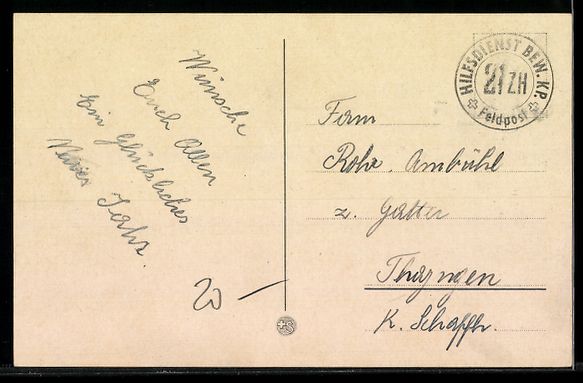 Wünsche
Euch Allen
Ein glückliches
Neues Jahr.
20 —
HILFSDIENST BEW. KP.
21 ZH
Feldpost
Fam
Rohr. Ambühl
z. Gatter
Thayngen
K. Schaffh.